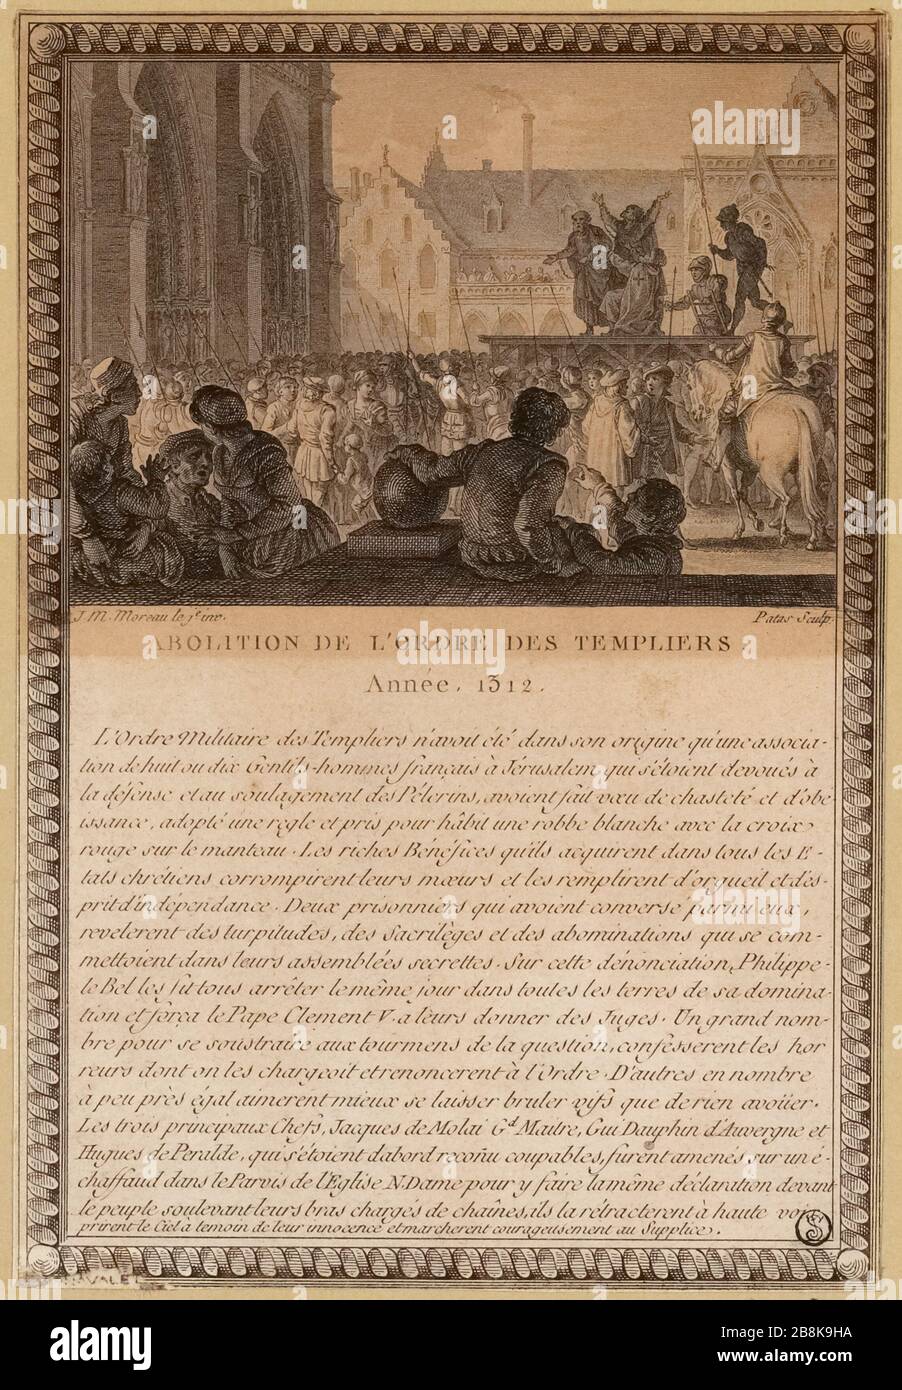 J. M. Moreau le j.e inv.
Patas Sculp.
ABOLITION DE L'ORDRE DES TEMPLIERS
Année. 1312.
L'Ordre Militaire des Templiers n'avoit été dans son origine qu'une associa-
tion de huit ou dix Gentils-hommes français à Jérusalem, qui s'étoient devoués à
la défense et au soulagement des Pélerins, avoient fait vœu de chasteté et d'obe
issance, adopté une regle et pris pour hâbit une robbe blanche avec la croix
rouge sur le manteau. Les riches Benéfices qu'ils acquirent dans tous les E-
tats chrétiens corrompirent leurs mœurs et les remplirent d'orgueil et d'es-
prit d'indépendance. Deux prisonniers qui avoient converse parmi eux,
revelerent des turpitudes, des sacrilèges et des abominations qui se com-
mettoient dans leurs assemblées secrettes. Sur cette dénonciation, Philippe-
le Bel les fit tous arrêter le même jour dans toutes les terres de sa domina-
tion et força le Pape Clement V. a leurs donner des Juges. Un grand nom-
bre pour se soustraire aux tourmens de la question, confesserent les hor
reurs dont on les chargeoit et renoncerent à l'Ordre. D'autres en nombre
à peu près égal aimerent mieux se laisser bruler vifs que de rien avoüer.
Les trois principaux Chefs, Jacques de Molai Gd. Maitre, Gui Dauphin d'Auvergne et
Hugues de Peralde, qui s'étoient d'abord reconu coupables, furent amenés sur un é-
chaffaud dans le Parvis de l'Eglise N. Dame pour y faire la même déclaration devant
le peuple soulevant leurs bras chargés de chaînes, ils la rétracterent à haute voix
prirent le Ciel à temoin de leur innocence et marcherent courageusement au Supplice.
alamy
Image ID: 2B8K9HA
www.alamy.com